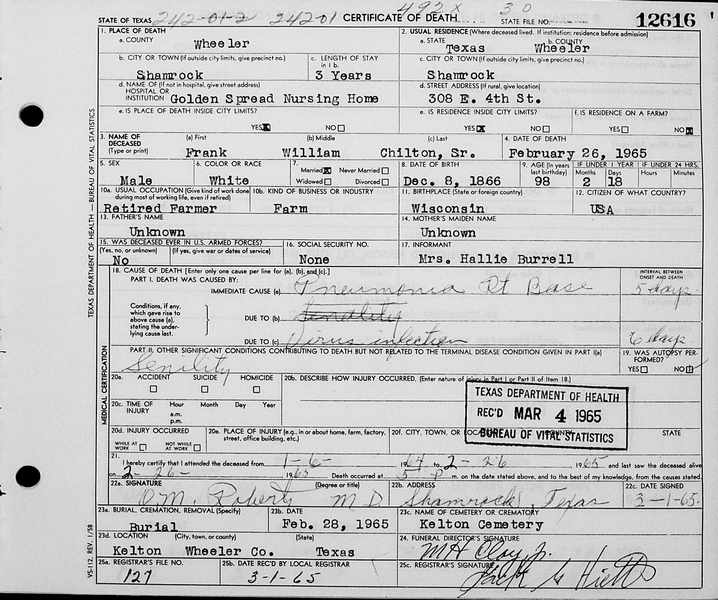 STATE OF TEXAS 242-01-2 24201 CERTIFICATE OF DEATH 492X 30 STATE FILE NO. 12616
1. PLACE OF DEATH
a. COUNTY Wheeler
2. USUAL RESIDENCE (Where deceased lived. If institution: residence before admission)
a. STATE Texas b. COUNTY Wheeler
b. CITY OR TOWN (If outside city limits, give precinct no.) Shamrock
c. LENGTH OF STAY in 1 b. 3 Years
c. CITY OR TOWN (If outside city limits, give precinct no.) Shamrock
d. NAME OF (If not in hospital, give street address) HOSPITAL OR INSTITUTION Golden Spread Nursing Home
d. STREET ADDRESS (If rural, give location) 308 E. 4th St.
e. IS PLACE OF DEATH INSIDE CITY LIMITS? YES X NO
e. IS RESIDENCE INSIDE CITY LIMITS? YES X NO
f. IS RESIDENCE ON A FARM? YES NO X
3. NAME OF DECEASED (Type or print) (a) First (b) Middle (c) Last
Frank William Chilton, Sr.
4. DATE OF DEATH February 26, 1965
5. SEX Male
6. COLOR OR RACE White
7. Married X Never Married Widowed Divorced
8. DATE OF BIRTH Dec. 8, 1866
9. AGE (In years last birthday) 98
IF UNDER 1 YEAR Months 2 Days 18
IF UNDER 24 HRS. Hours Min.
10a. USUAL OCCUPATION (Give kind of work done during most of working life, even if retired) Retired Farmer
10b. KIND OF BUSINESS OR INDUSTRY Farm
11. BIRTHPLACE (State or foreign country) Wisconsin
12. CITIZEN OF WHAT COUNTRY? USA
13. FATHER'S NAME Unknown
14. MOTHER'S MAIDEN NAME Unknown
15. WAS DECEASED EVER IN U.S. ARMED FORCES? (Yes, no, or unknown) (If yes, give war or dates of service) No
16. SOCIAL SECURITY NO. None
17. INFORMANT Mrs. Hallie Burrell
18. CAUSE OF DEATH [Enter only one cause per line for (a), (b), and (c).] INTERVAL BETWEEN ONSET AND DEATH
PART I. DEATH WAS CAUSED BY:
IMMEDIATE CAUSE (a) Pneumonia Rt Base 5 days
Conditions, if any, which gave rise to above cause (a), stating the underlying cause last.
DUE TO (b) Senality
DUE TO (c) Virus infection 6 days
PART II. OTHER SIGNIFICANT CONDITIONS CONTRIBUTING TO DEATH BUT NOT RELATED TO THE TERMINAL DISEASE CONDITION GIVEN IN PART I(a)
Senility
19. WAS AUTOPSY PERFORMED? YES NO
20a. ACCIDENT SUICIDE HOMICIDE
20b. DESCRIBE HOW INJURY OCCURRED. (Enter nature of injury in Part I or Part II of Item 18.)
20c. TIME OF INJURY Hour Month Day Year
a.m.
p.m.
20d. INJURY OCCURRED WHILE AT WORK NOT WHILE AT WORK
20e. PLACE OF INJURY (e.g., in or about home, farm, factory, street, office building, etc.)
20f. CITY, TOWN, OR STATE
TEXAS DEPARTMENT OF HEALTH
REC'D MAR 4 1965
BUREAU OF VITAL STATISTICS
21. I hereby certify that I attended the deceased from 1-6- 1964 2-26 1965 and last saw the deceased alive
on 2-26- 1965 Death occurred at 5 P m. on the date stated above, and to the best of my knowledge, from the causes stated.
22a. SIGNATURE (Degree or title) O.M. Roberts MD
22b. ADDRESS Shamrock, Texas
22c. DATE SIGNED 3-1-65
23a. BURIAL, CREMATION, REMOVAL (Specify) Burial
23b. DATE Feb. 28, 1965
23c. NAME OF CEMETERY OR CREMATORY Kelton Cemetery
23d. LOCATION (City, town, or county) (State) Kelton Wheeler Co. Texas
24. FUNERAL DIRECTOR'S SIGNATURE M H Clay Jr.
25a. REGISTRAR'S FILE NO. 127
25b. DATE REC'D BY LOCAL REGISTRAR 3-1-65
25c. REGISTRAR'S SIGNATURE
TEXAS DEPARTMENT OF HEALTH — BUREAU OF VITAL STATISTICS
MEDICAL CERTIFICATION
VS-112, REV. 1/58